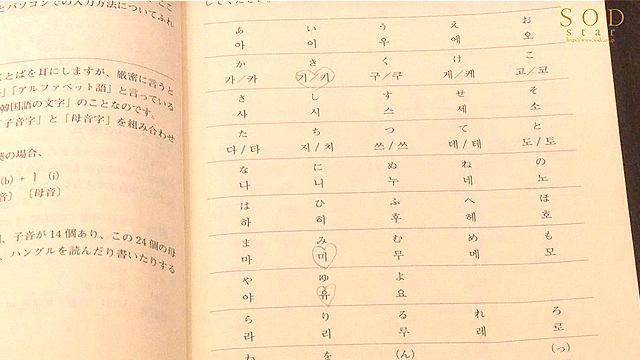 とパソコンでの入力方法についてふれ
してください。
SOD
star
ことばを耳にしますが、厳密に言うと
」「アルファベット語」と言っている
韓国語の文字」のことなのです。
「子音字」と「母音字」を組み合わせ
の場合、
(b) + ㅣ (i)
音〕 〔母音〕
、子音が14個あり、この24個の母
、ハングルを読んだり書いたりする
あ い う え お
아 이 우 에 오
か き く け こ
가/카 기/키 구/쿠 게/케 고/코
さ し す せ そ
사 시 스 세 소
た ち つ て と
다/타 지/치 쓰/쓰 데/테 도/토
な に ぬ ね の
나 니 누 네 노
は ひ ふ へ ほ
하 히 후 헤 호
ま み む め も
마 미 무 메 모
や ゆ よ
야 유 요
ら り る れ ろ
라 리 루 레 로
わ を (ん) (っ)